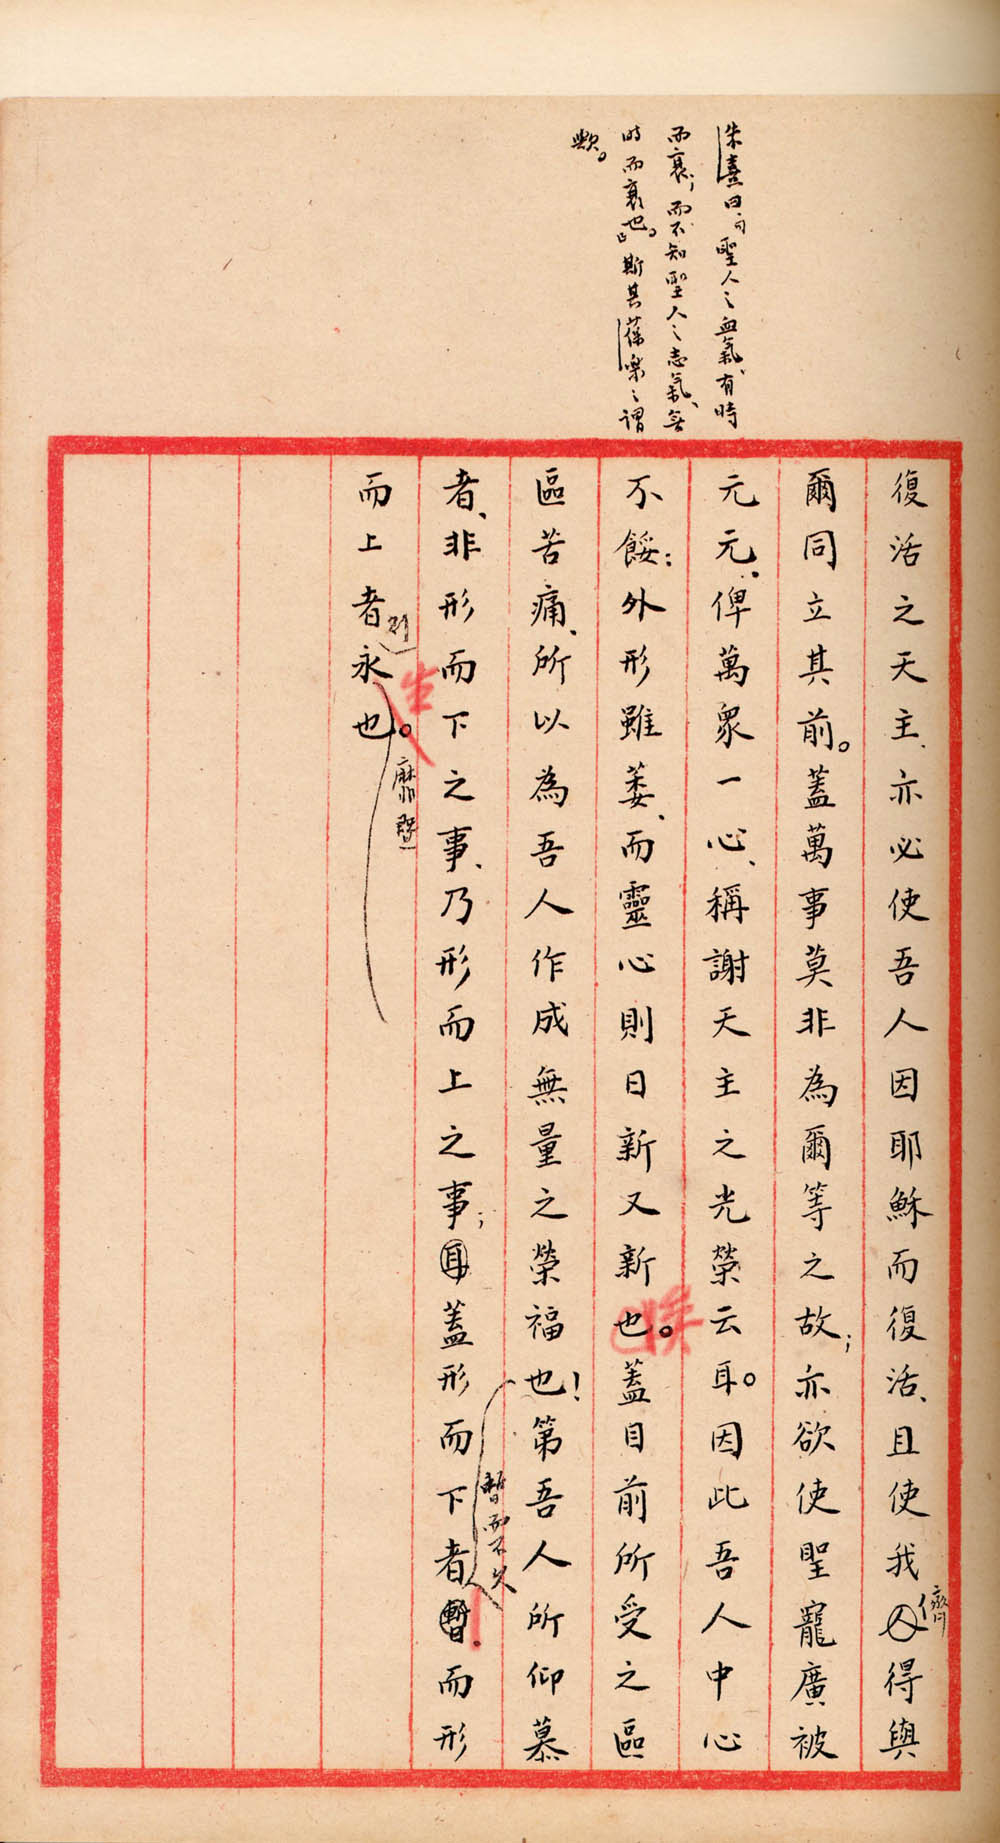 朱熹曰、「聖人之血氣、有時
而衰;而不知聖人之志氣、無
時而衰也。」斯其葆樂之謂
歟。
復活之天主、亦必使吾人因耶穌而復活、且使我儕得與
爾同立其前。蓋萬事莫非為爾等之故;亦欲使聖寵廣被
元元、俾萬眾一心、稱謝天主之光榮云耳。因此吾人中心
不餒:外形雖萎、而靈心則日新又新也。蓋目前所受之區
區苦痛、所以為吾人作成無量之榮福也!第吾人所仰慕
者、非形而下之事、乃形而上之事;耳蓋形而下者暫、而形
暫而不久
而上者永也。
則
靡暨